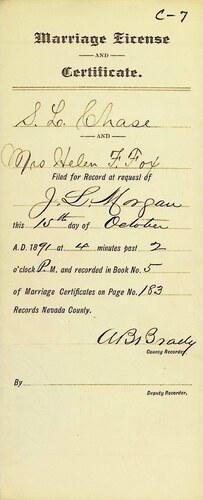 C-7
Marriage License
AND
Certificate.
S. L. Chase
AND
Mrs Helen F. Fox
Filed for Record at request of
J. L. Morgan
this 15th day of October
A.D. 1891 at 4 minutes past 2
o'clock P. M. and recorded in Book No. 5
of Marriage Certificates on Page No. 183
Records Nevada County.
A B Brady
County Recorder
By
Deputy Recorder.